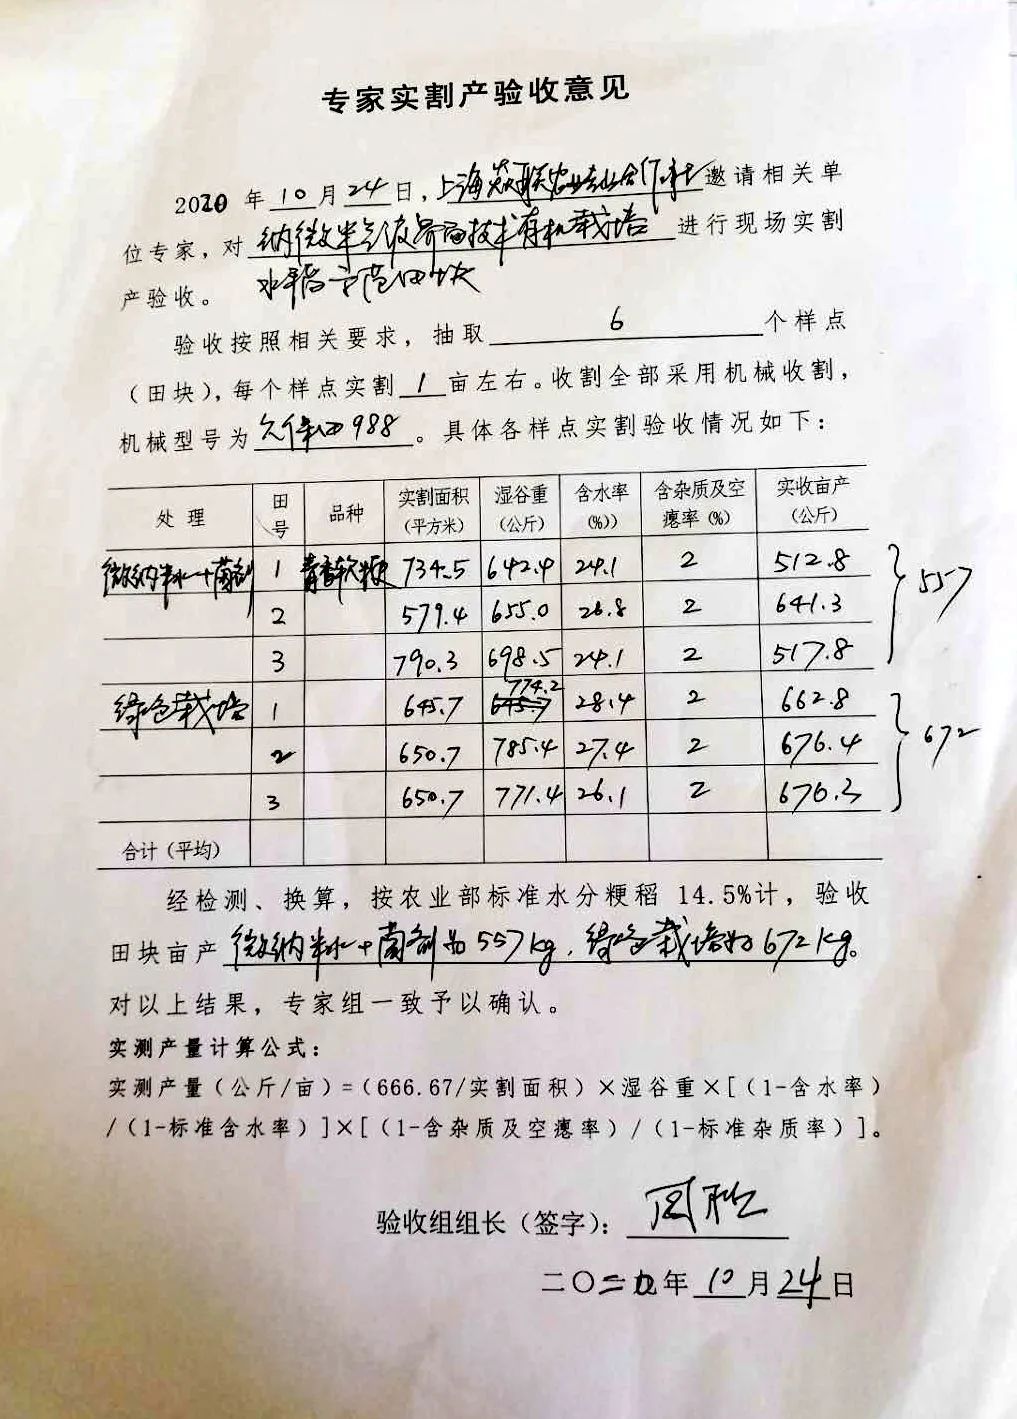 专家实割产验收意见
2020 年 10 月 24 日，上海炎联农业专业合作社 邀请相关单
位专家，对 纳微米气液界面技术有机栽培 进行现场实割
产验收。 水稻示范田块
验收按照相关要求，抽取 6 个样点
（田块），每个样点实割 1 亩左右。收割全部采用机械收割，
机械型号为 久保田988 。具体各样点实割验收情况如下：
处 理 田号 品种 实割面积（平方米） 湿谷重（公斤） 含水率（%)） 含杂质及空瘪率（%） 实收亩产（公斤）
微纳米水+菌剂 1 青香软粳 734.5 642.4 24.1 2 512.8
2 579.4 655.0 26.8 2 641.3 557
3 790.3 698.5 24.1 2 517.8
绿色栽培 1 645.7 774.2 28.4 2 662.8
2 650.7 785.4 27.4 2 676.4 672
3 650.7 771.4 26.1 2 676.3
合计（平均）
经检测、换算，按农业部标准水分粳稻 14.5%计，验收
田块亩产 微纳米水+菌剂为557kg，绿色栽培为672kg。
对以上结果，专家组一致予以确认。
实测产量计算公式：
实测产量（公斤/亩）=（666.67/实割面积）×湿谷重×[（1-含水率）
/（1-标准含水率）]×[（1-含杂质及空瘪率）/（1-标准杂质率）]。
验收组组长（签字）：
二〇二 年 10 月 24 日